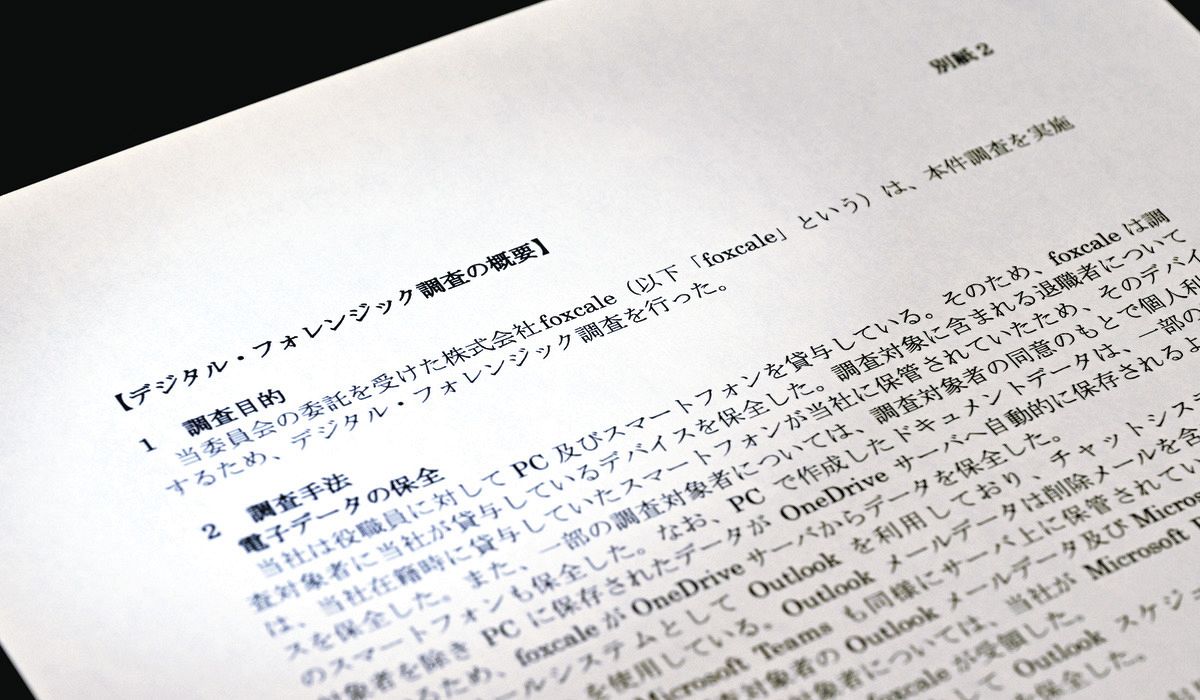 別紙2
【デジタル・フォレンジック調査の概要】
1 調査目的
当委員会の委託を受けた株式会社foxcale(以下「foxcale」という)は、本件調査を実施
するため、デジタル・フォレンジック調査を行った。
2 調査手法
電子データの保全
当社は役職員に対してPC及びスマートフォンを貸与している。そのため、foxcaleは調
査対象者に当社が貸与しているデバイスを保全した。調査対象に含まれる退職者について
は、当社在籍時に貸与していたスマートフォンが当社に保管されていたため、そのデバイ
スを保全した。また、一部の調査対象者については、調査対象者の同意のもとで個人利
のスマートフォンも保全した。なお、PCで作成したドキュメントデータは、一部の
対象者を除きPCに保存されたデータがOneDriveサーバへ自動的に保存されるよ
るため、foxcaleがOneDriveサーバからデータを保全した。
ールシステムとしてOutlookを利用しており、チャットシステ
を使用している。Outlookメールデータは削除メールを含
Microsoft Teamsも同様にサーバ上に保管されてい
対象者のOutlookメールデータ及びMicros
対象者については、当社がMicrosoft
foxcaleが受領した。
Outlookスケジ
保全した。